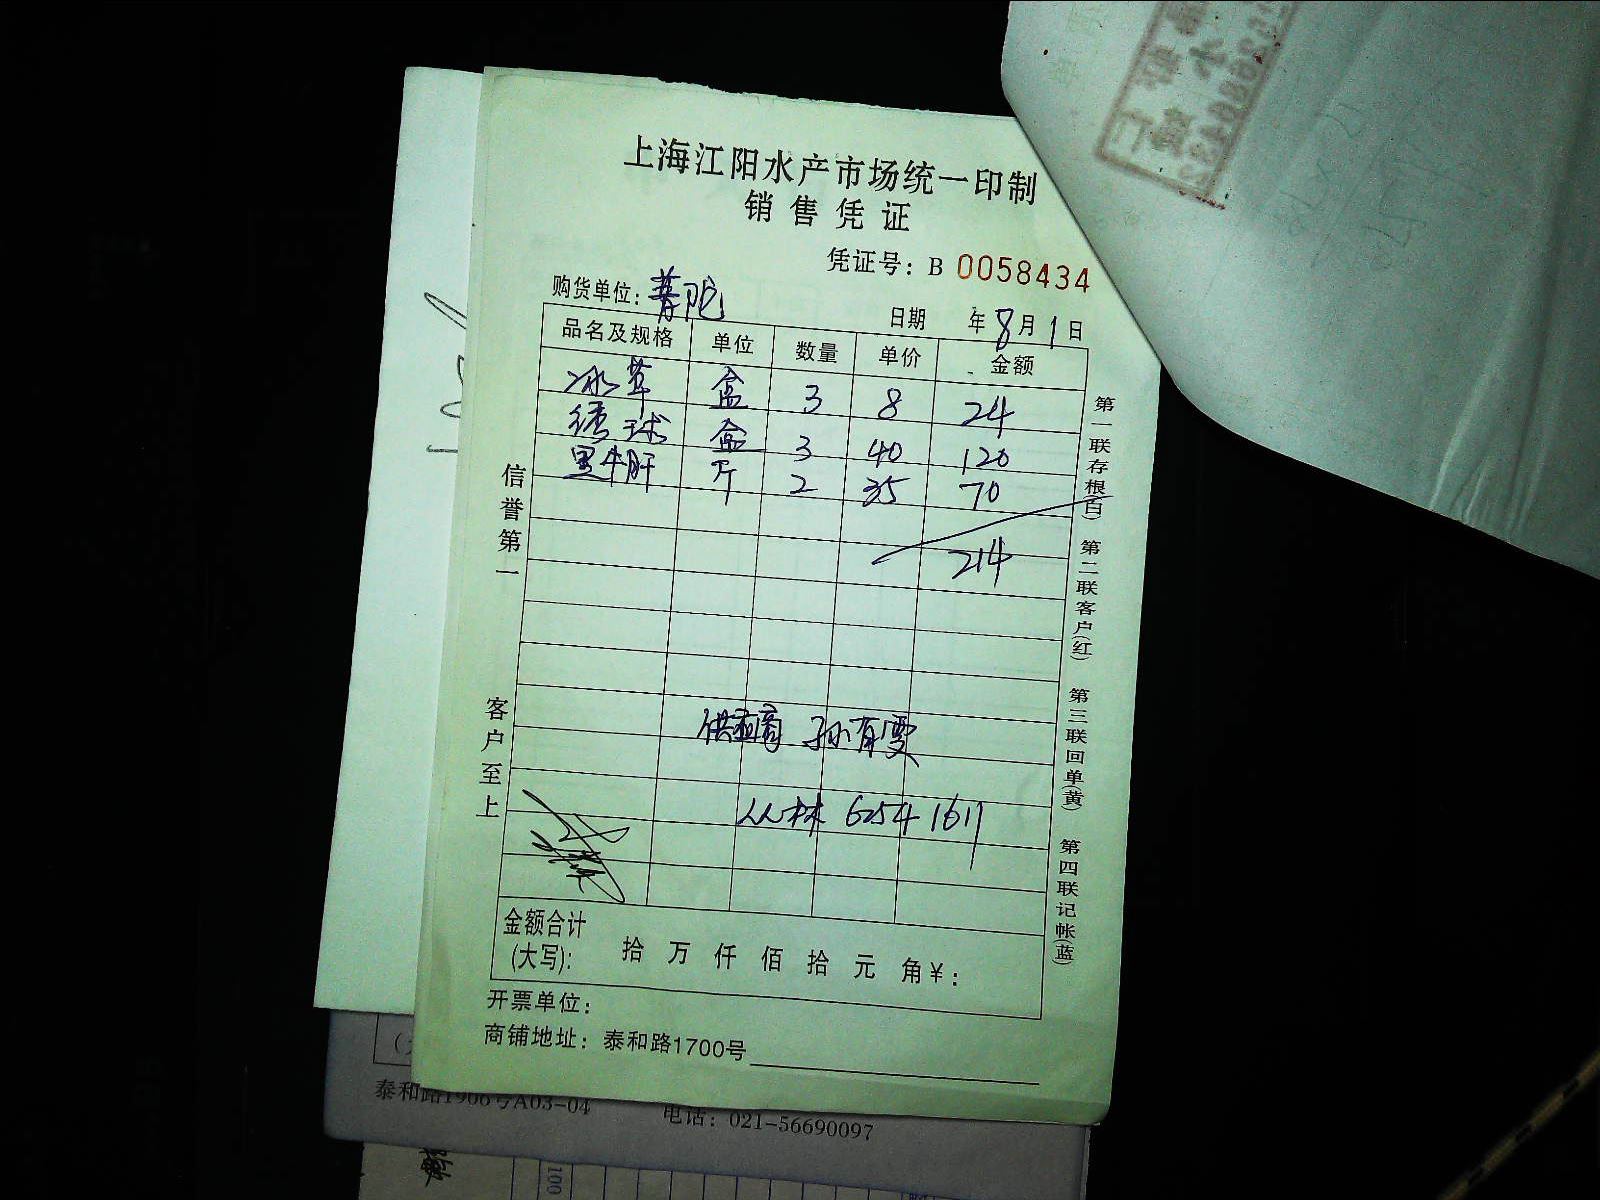 上海江阳水产市场统一印制
销售凭证
凭证号：B 0058434
购货单位：普陀
日期 年8月1日
品名及规格 单位 数量 单价 金额
冰草 盒 3 8 24
绣球 盒 3 40 120
黑牛肝 斤 2 35 70
214
供应商 孙有雯
丛林 62541611
信誉第一
客户至上
第一联存根(白) 第二联客户(红) 第三联回单(黄) 第四联记帐(蓝)
金额合计
(大写)： 拾 万 仟 佰 拾 元 角 ¥：
开票单位：
商铺地址：泰和路1700号
泰和路1906号A03-04 电话：021-56690097
100